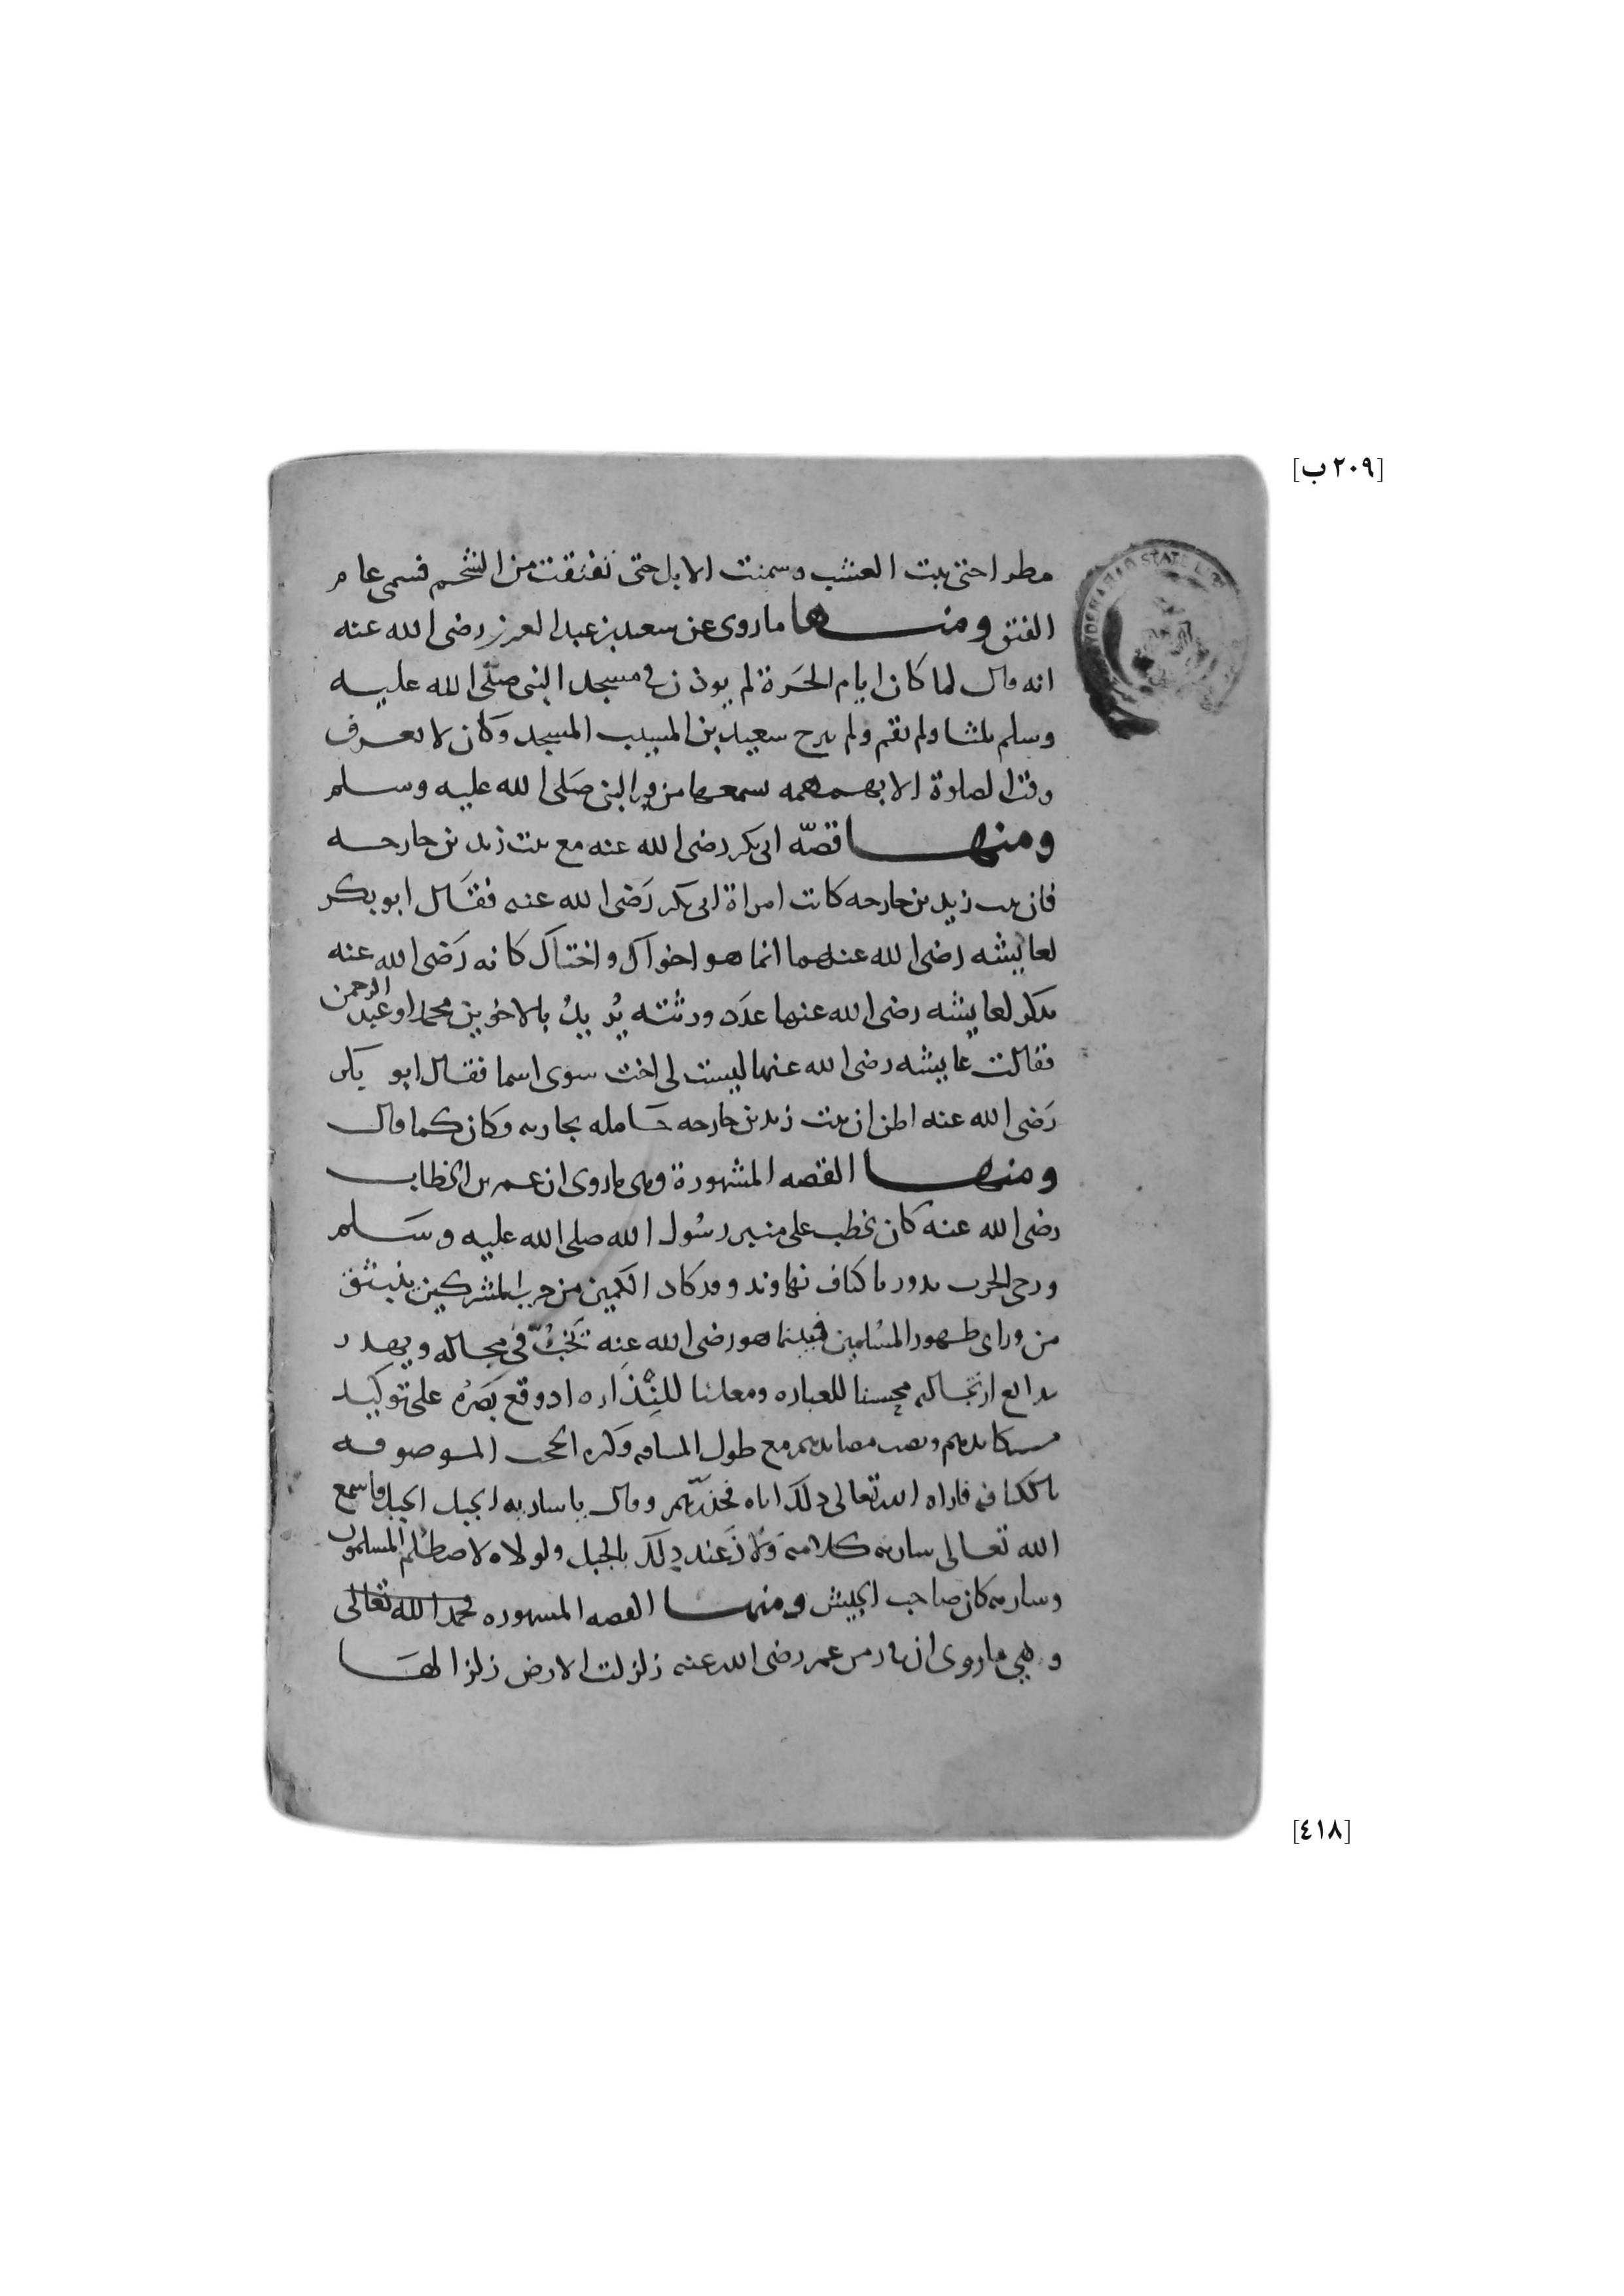 [٢٠٩ ب]
HYDERABAD STATE
مطرا حتى نبت العشب وسمنت الابل حتى تفتقت من الشحم فسمى عام
الفتق ومنها ماروى عن سعيد بن عبد العزيز رضى الله عنه
انه قال لما كان ايام الحَرة لم يوذن فى مسجد النبى صلّى الله عليه
وسلم ثلثا ولم يقم ولم يبرح سعيد بن المسيب المسجد وكان لا يعرف
وقت الصلوة الا بهمهمه يسمعها من قبر النبى صَلى الله عليه وسلم
ومنها قصّه ابى بكر رضى الله عنه مع بنت زيد بن خارجه
فان بنت زيد بن خارجه كانت امراة ابى بكر رَضى الله عنه فقَال ابو بكر
لعايشه رضى الله عنهما انما هو اخواك واختاك كانه رَضى الله عنه
يذكر لعايشه رضى الله عنها عدَد ورثته يُريدُ بالاخوين محمدا وعبد الرحمن
فقالت عايشه رضى الله عنها ليست لى اخت سوى اسما فقال ابو بكر
رَضى الله عنه اظن ان بنت زيد بن خارجه حَامله بجاريه وكان كما قال
ومنها القصه المشهورة وهى ماروى ان عمر بن الخطاب
رضى الله عنه كان يخطب على منبر رسُول الله صلى الله عليه وسَلم
ورحى الحرب يدور باكناف نهاوند وقد كاد الكمين من حرب المشركين ينبثق
من وراى ظهور المسُلمين فبينما هو رضى الله عنه يَخُبُّ فى مجاله ويهدر
بدايع ارتجاله محسنا للعباره ومعلنا للنِذَاره اذ وقع بصَرُه على توكيد
مكايدهم ونصب مصايدهم مع طول المسافه وكثره الحجب الموصوفه
بالكثافه فاراه الله تعالى ذلك اياه فحذّرهم وقال يا ساريه الجبل الجبل فاسمع
الله تعالى ساريه كلامه ولَاذَ عند ذلك بالجبل ولولاه لاصطُلم المسلمون
وساريه كان صاحب الجيش ومنها القصه المشهوره بحمد الله تعالى
وهى ماروى ان فى زمن عمر رضى الله عنه زلزلت الارض زلزالهَا
[٤١٨]